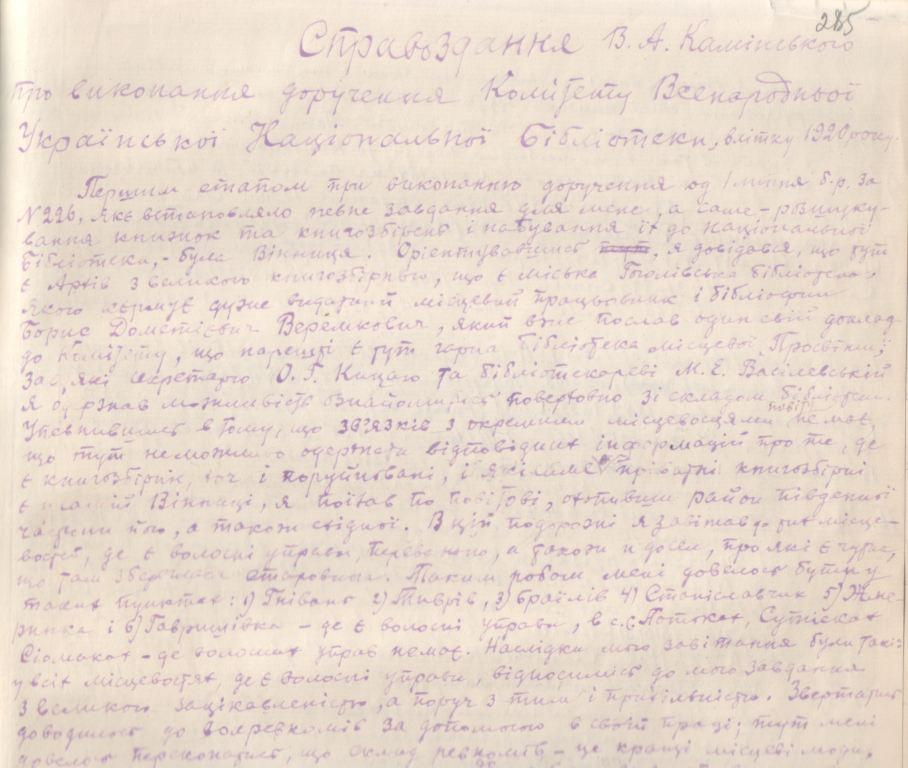 285
Справоздання В. А. Камінського
про виконання доручення Комітету Всенародньої
Української Національної Бібліотеки, влітку 1920 року.
Першим етапом при виконанню доручення од 1 липня б.р. за
№ 226, яке встановляло певне завдання для мене, а саме – розшуку-
вання книжок та книгозбірень і набування їх до національної
бібліотеки, – була Вінниця. Орієнтувавшись, я довідався, що тут
є Архів з великою книгозбірнею, що є міська Гоголівська бібліотека,
якою керує дуже видатний місцевий працьовник і бібліофил
Борис Дометієвич Веремкович, який вже послав один свій доклад
до Комітету, що нарешті є тут гарна бібліотека місцевої „Просвіти";
Завдяки секретарю О. Г. Кицаю та бібліотекареві М. Е. Василевській
я одержав можливість ознайомитись поверховно зі складом бібліотеки.
Упевнившись в тому, що зв'язків з окремими місцевосцями повіту немає,
що тут неможливо одержати відповідних інформацій про те, де
є книгозбірні, хоч і поруйновані, і які саме приватні книгозбірні
є в самій Вінниці, я поїхав по повітові, охопивши район південної
частини його, а також східної. В цій подорожі я заїжав до тих місце-
востей, де є волосні управи переважно, а також и до сел, про які є чутка,
що там збереглася старовина. Таким робом мені довелось бути у
таких пунктах: 1) Гнівань 2) Тиврів, 3) Браїлів 4) Станіславчик 5) Жме-
ринка і 6) Гавришівка – де є волосні управи, в с.с. Потоках, Сутисках
Сіомаках – де волосних управ немає. Наслідки мого завітання були такі:
у всіх місцевостях, де є волосні управи, відносились до мого завдання
з великою зацікавленістю, а поруч з тим і прихильністю. Звертатись
доводилось до волревкомів за допомогою в своїй праці; тут мені
довелось переконатись, що склад ревкомів – це кращі місцеві люди,